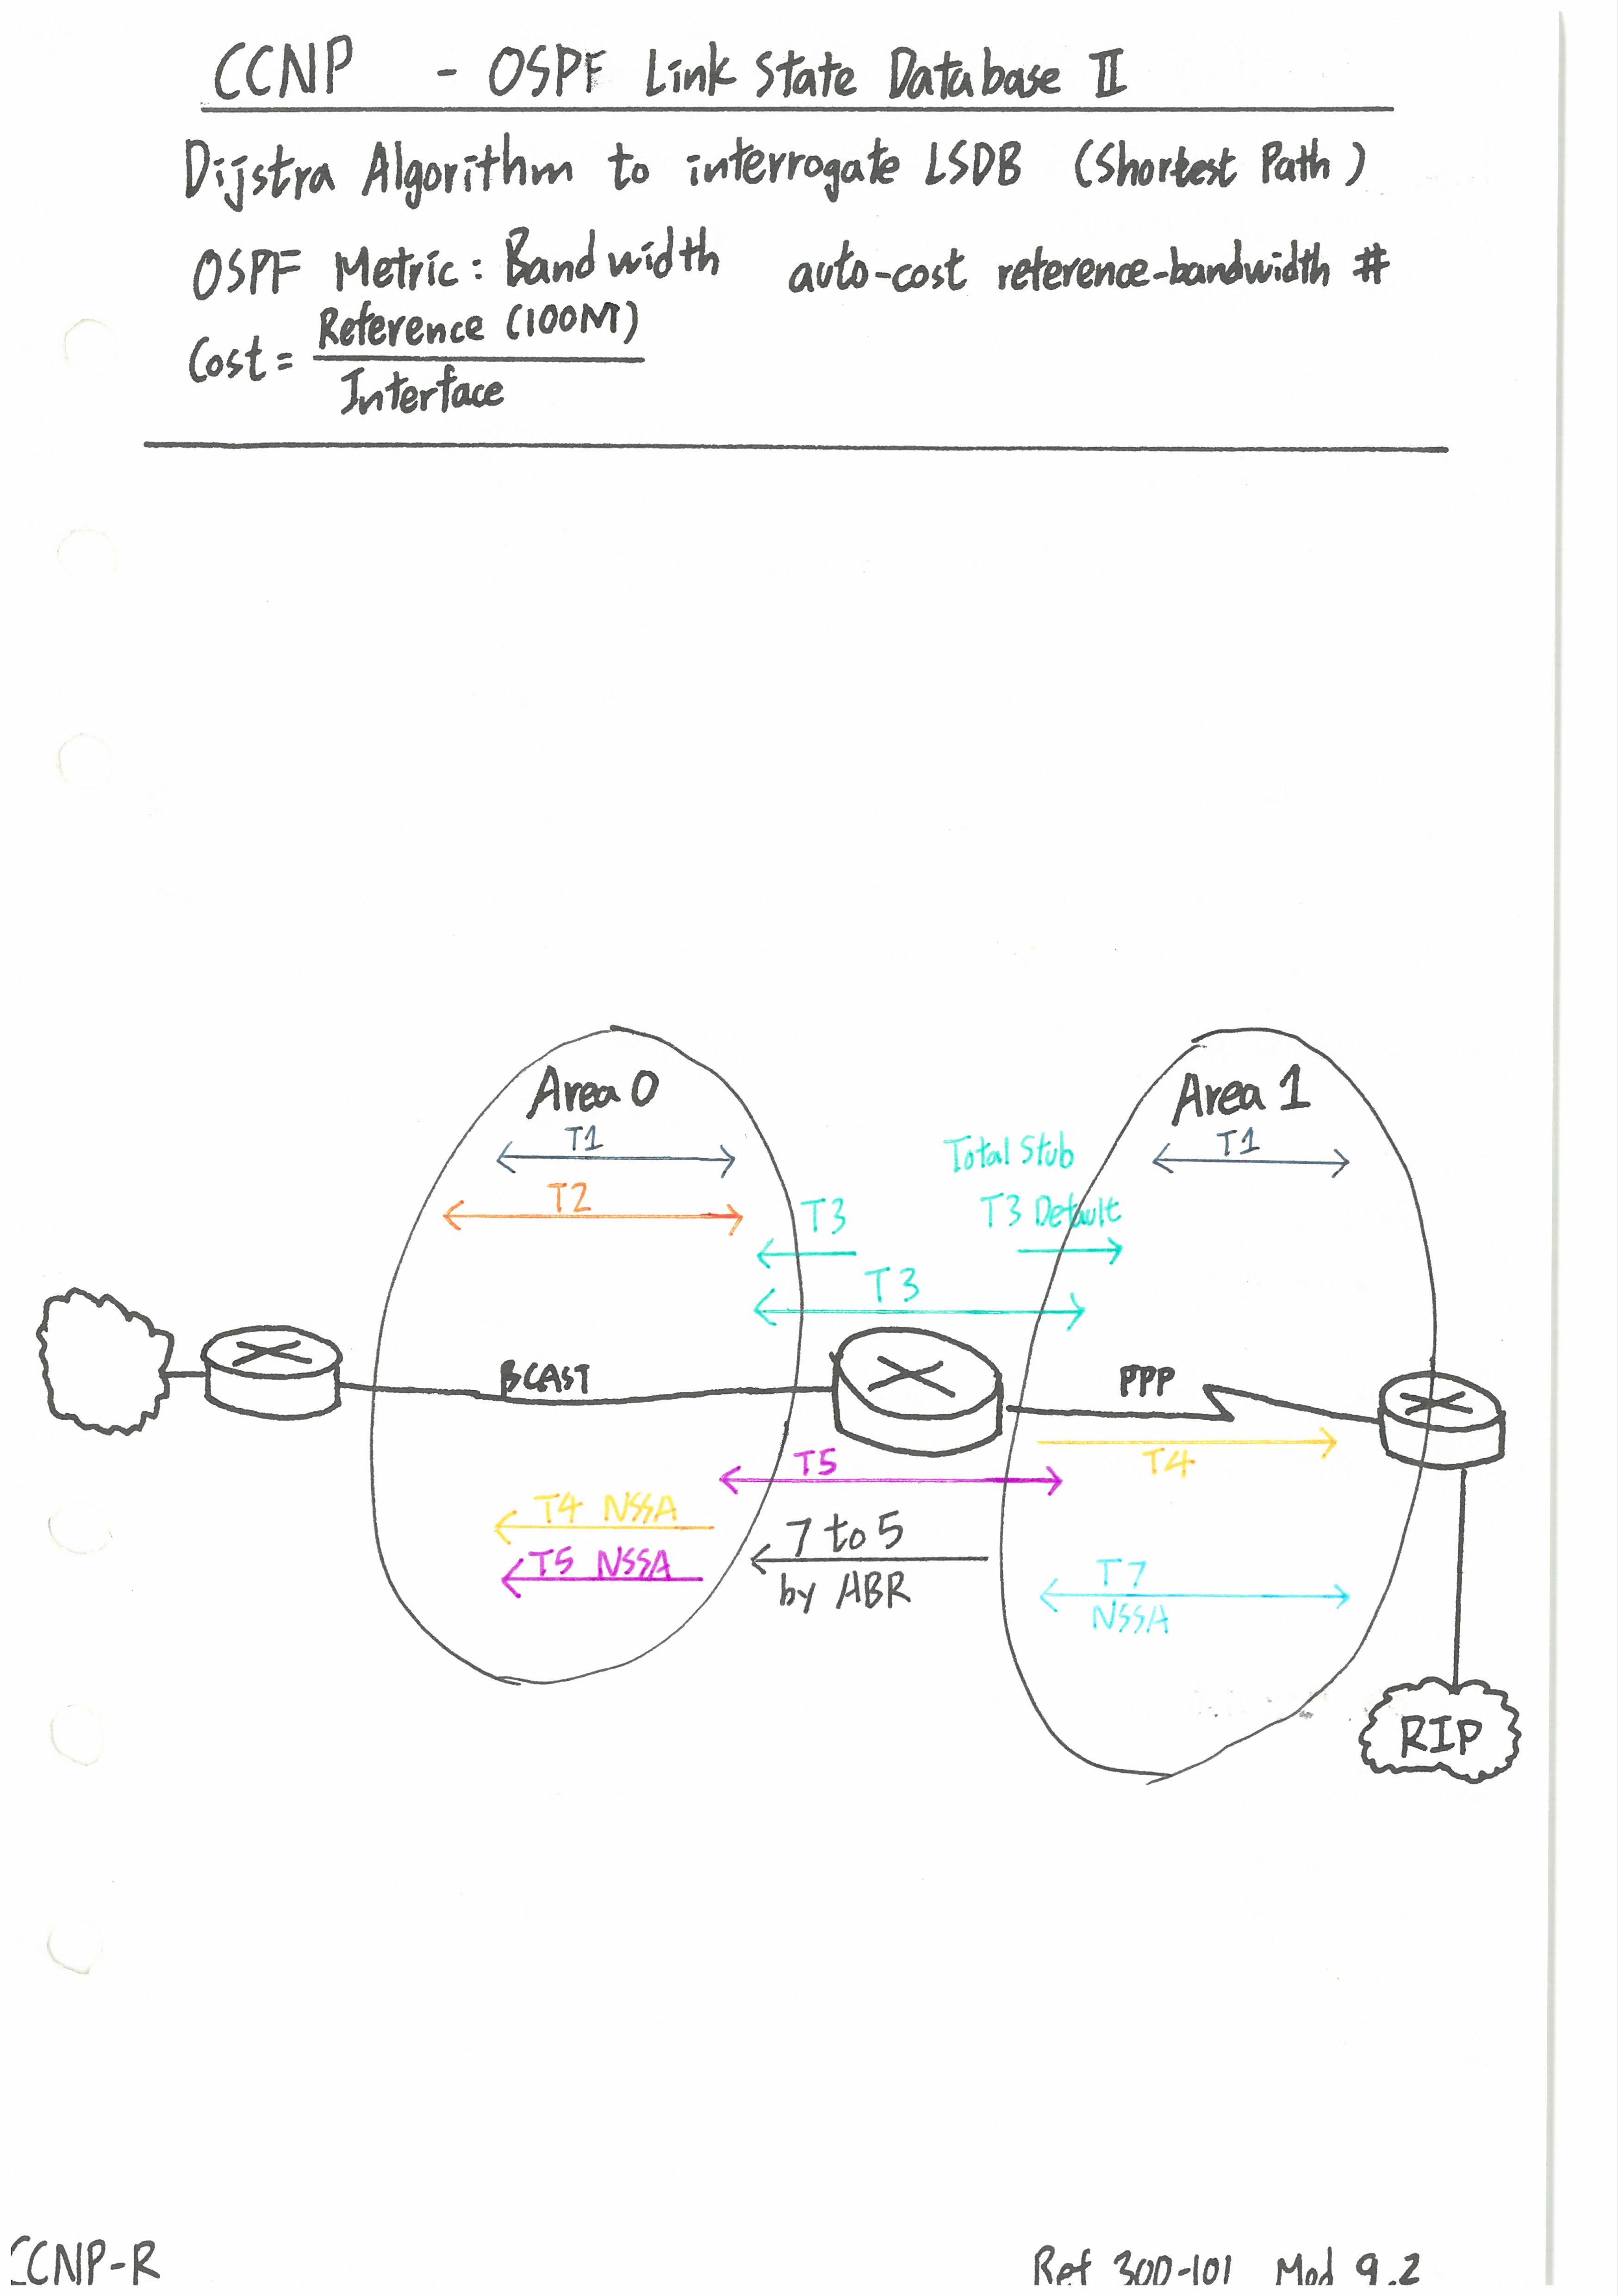 CCNP - OSPF Link State Database II
Dijstra Algorithm to interrogate LSDB (Shortest Path)
OSPF Metric: Bandwidth auto-cost reference-bandwidth #
Cost = Reference (100M)
Interface
Area 0
T1
T2
T3
T3
Total Stub
T3 Default
Area 1
T1
BCAST
PPP
T4
T5
T4 NSSA
T5 NSSA
7 to 5
by ABR
T7
NSSA
RIP
CCNP-R
Ref 300-101 Mod 9.2